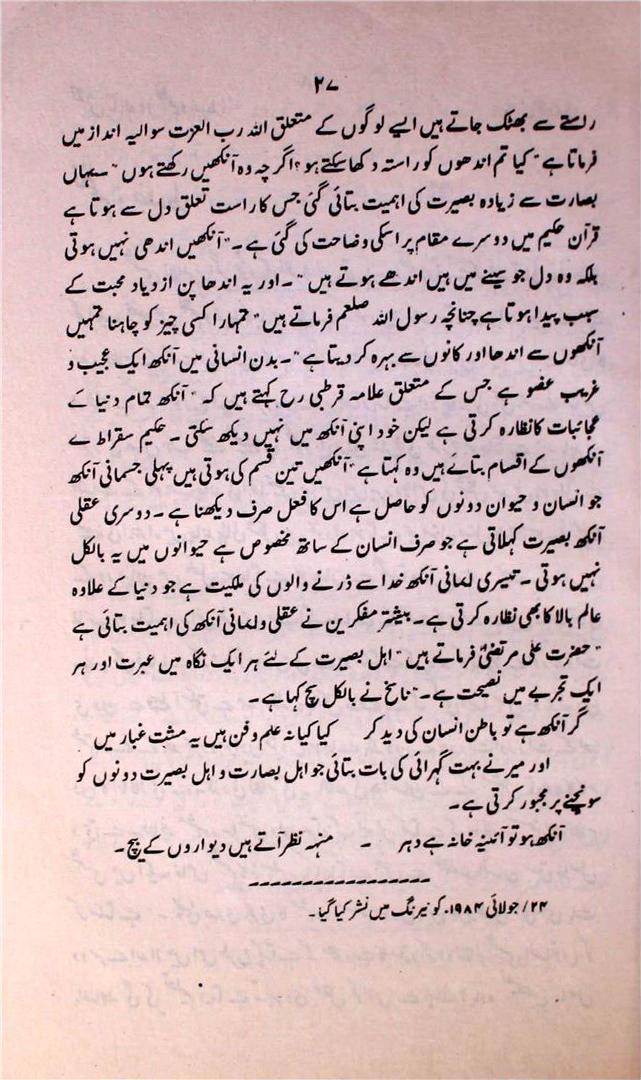 ۲۷
راستے سے بھٹک جاتے ہیں ایسے لوگوں کے متعلق اللہ رب العزت سوالیہ انداز میں
فرماتا ہے "کیا تم اندھوں کو راستہ دکھا سکتے ہو؟ اگرچہ وہ آنکھیں رکھتے ہوں"۔ یہاں
بصارت سے زیادہ بصیرت کی اہمیت بتائی گئی جس کا راست تعلق دل سے ہوتا ہے
قرآن حکیم میں دوسرے مقام پر اسکی وضاحت کی گئی ہے۔ "آنکھیں اندھی نہیں ہوتی
بلکہ وہ دل جو سینے میں ہیں اندھے ہوتے ہیں"۔ اور یہ اندھا پن ازدیاد محبت کے
سبب پیدا ہوتا ہے چنانچہ رسول اللہ صلعم فرماتے ہیں "تمہارا کسی چیز کو چاہنا تمہیں
آنکھوں سے اندھا اور کانوں سے بہرہ کر دیتا ہے"۔ بدن انسانی میں آنکھ ایک عجیب و
غریب عضو ہے جس کے متعلق علامہ قرطبی رح کہتے ہیں کہ "آنکھ تمام دنیا کے
عجائبات کا نظارہ کرتی ہے لیکن خود اپنی آنکھ میں نہیں دیکھ سکتی۔ حکیم سقراط نے
آنکھوں کے اقسام بتائے ہیں وہ کہتا ہے "آنکھیں تین قسم کی ہوتی ہیں پہلی جسمانی آنکھ
جو انسان و حیوان دونوں کو حاصل ہے اس کا فعل صرف دیکھنا ہے۔ دوسری عقلی
آنکھ بصیرت کہلاتی ہے جو صرف انسان کے ساتھ مخصوص ہے حیوانوں میں یہ بالکل
نہیں ہوتی۔ تیسری ایمانی آنکھ خدا سے ڈرنے والوں کی ملکیت ہے جو دنیا کے علاوہ
عالم بالا کا بھی نظارہ کرتی ہے۔ بیشتر مفکرین نے عقلی و ایمانی آنکھ کی اہمیت بتائی ہے
"حضرت علی مرتضیٰؓ فرماتے ہیں "اہل بصیرت کے لئے ہر ایک نگاہ میں عبرت اور ہر
ایک تجربے میں نصیحت ہے۔" ناسخ نے بالکل سچ کہا ہے۔
گر آنکھ ہے تو باطن انسان کی دید کر کیا کیا نہ علم و فن ہیں یہ مشت غبار میں
اور میر نے بہت گہرائی کی بات بتائی جو اہل بصارت و اہل بصیرت دونوں کو
سونچنے پر مجبور کرتی ہے۔
آنکھ ہو تو آئینہ خانہ ہے دہر ۔ منہہ نظر آتے ہیں دیواروں کے بیچ۔
۲۴/ جولائی ۱۹۸۴ء کو نیرنگ میں نشر کیا گیا۔